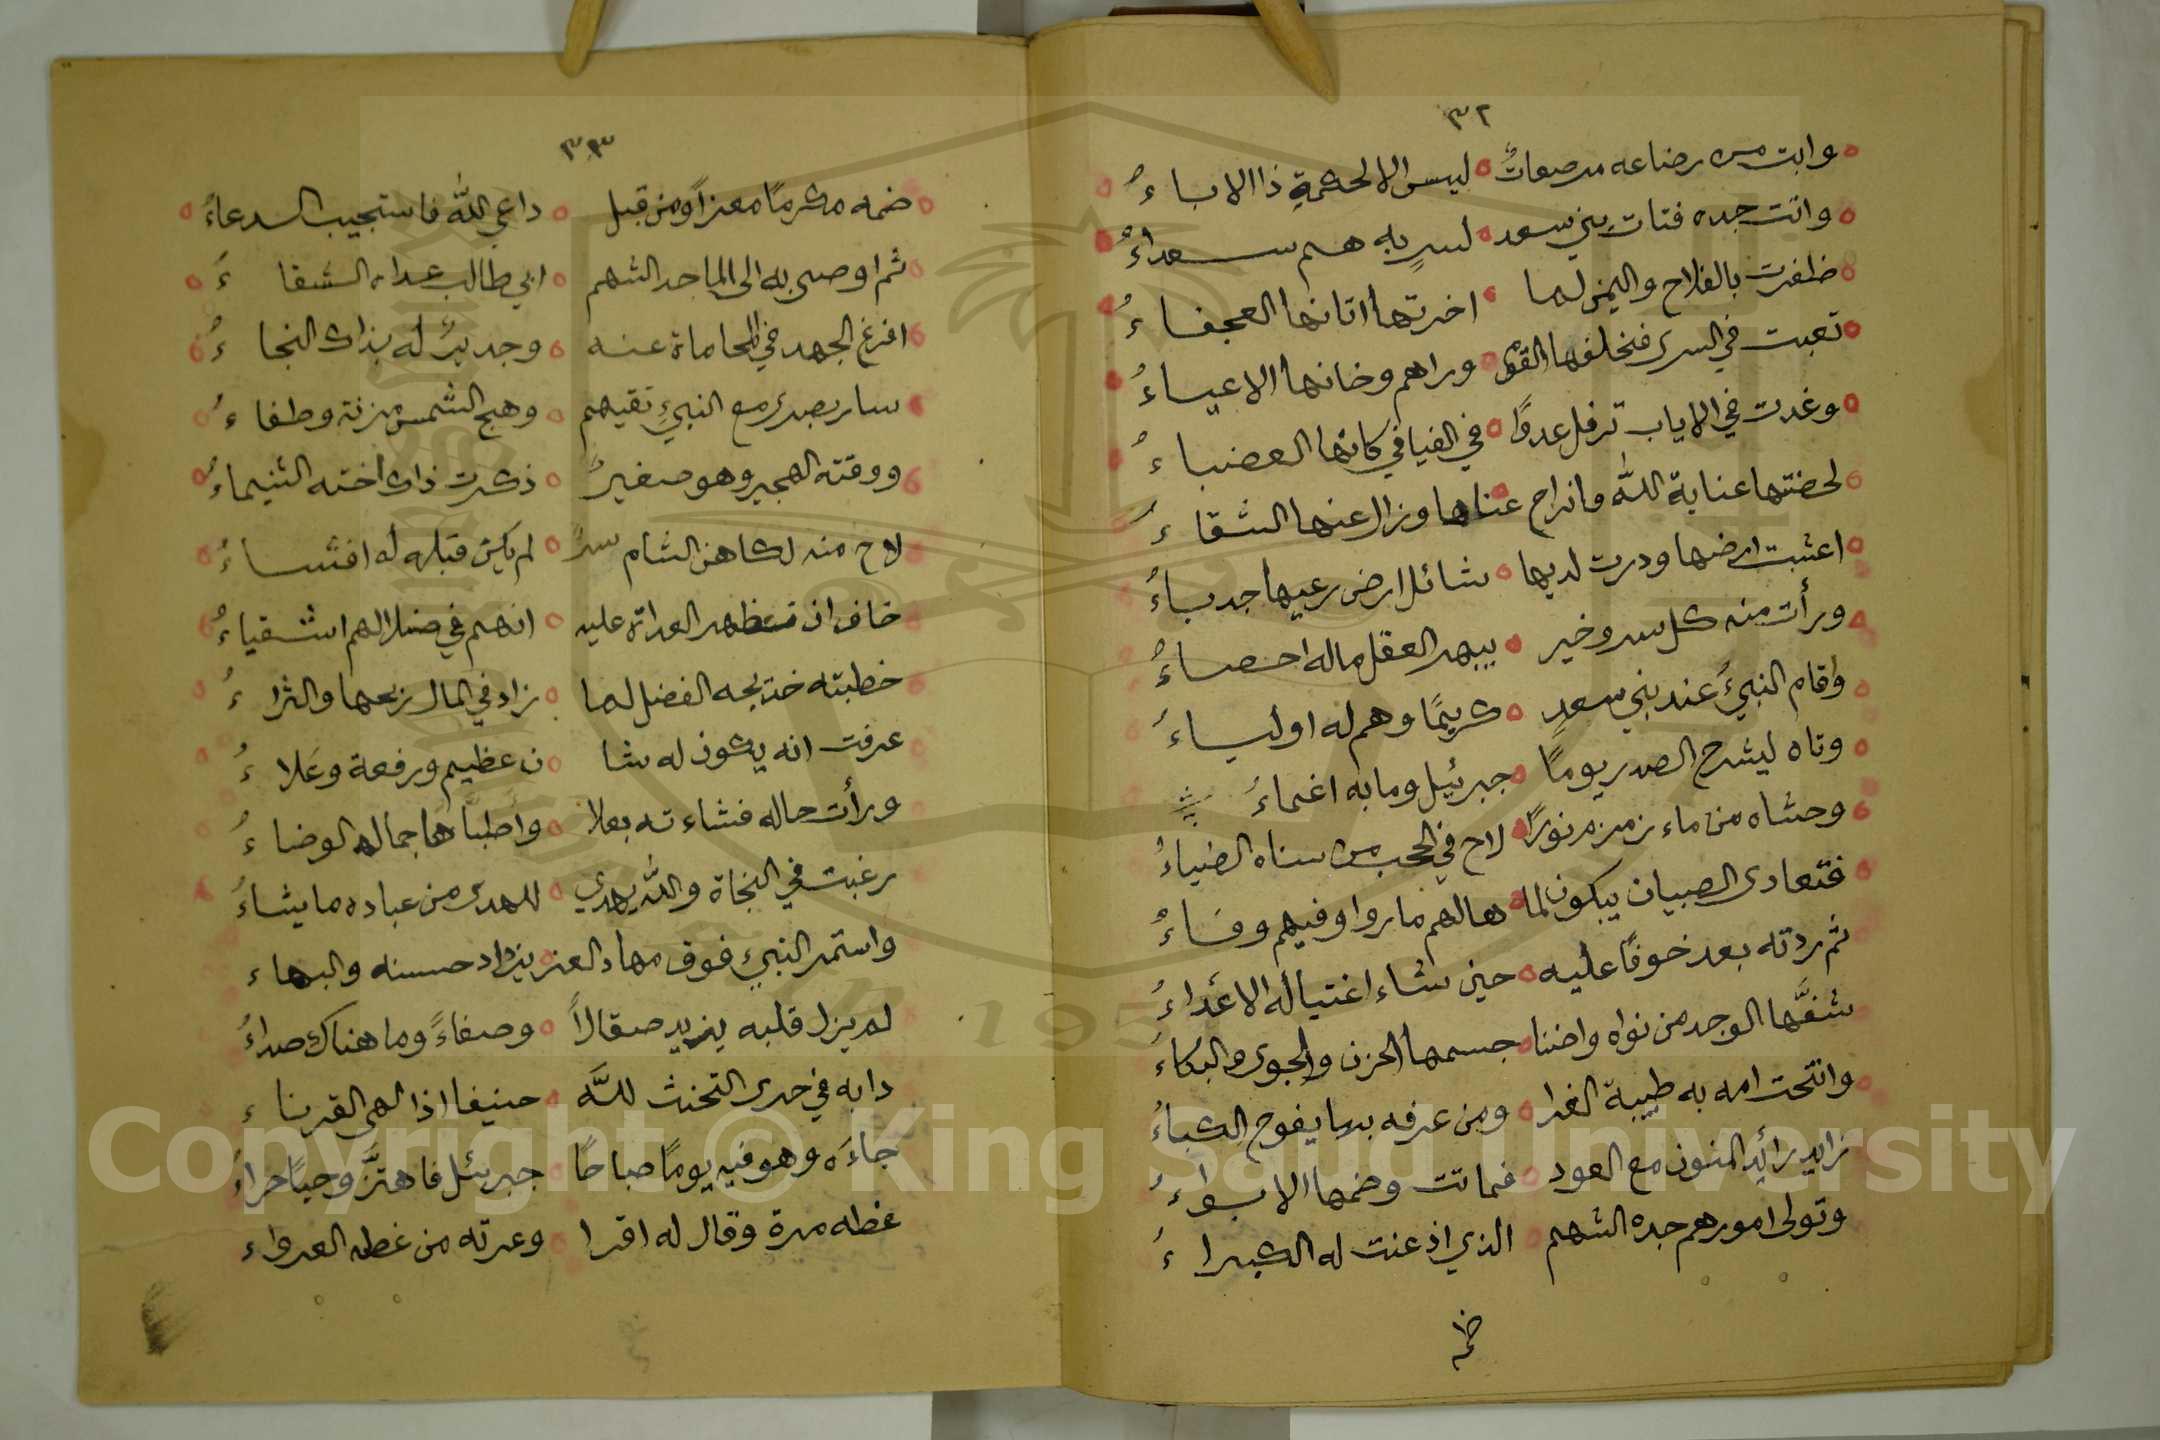 ٣٢
وابت من رضاعه مرضعات ليس الا لحكمةٍ ذا الاباءُ
واتت جده فتات بني سعد لسرٍ به هم سعداءُ
ظفرت بالفلاح واليمن لما اخرتها اتانها العجفاءُ
تعبت في السرى فخلفها القوم وراهم وخانها الاعياءُ
وغدت في الاياب ترفل عدوًا في الفيافي كانها العضباءُ
لحضتها عناية الله وانزاح عناها وزال عنها الشقاءُ
اعشبت ارضها ودرت لديها شائل ارض رعيها جدباءُ
ورأت منه كل سر وخير يبهر العقل ماله احصاءُ
واقام النبيُ عند بني سعد كريمًا وهم له اولياءُ
وتاه ليشرح الصدر يومًا جبرئيل وما به اغماءُ
وحشاه من ماء زمزم نورًا لاح في الحجب من سناه الضياءُ
فتعادى الصبيان يبكون لما هالهم ما روا وفيهم وفاءُ
ثم ردته بعد خوفًا عليه حين شاء اغتياله الاعداءُ
شفَّها الوجد من نواه واضنا جسمها الحزن والجوى والبكاءُ
وانتحت امه به طيبة الغرا ومن عرفه بها يفوح الكباءُ
زايد رائد المنون مع العود فماتت وضمها الابواءُ
وتولى امورهم جده الشهم الذي اذعنت له الكبراءُ
ضمه
٣٣
ضمه مكرمًا معزاً ومن قبل داعي الله فاستجيب الدعاءُ
ثم اوصى به الى الماجد الشهم ابي طالب عداه الشقاءُ
افرغ الجهد في المحاماة عنه وجديرٌ له بذاك النجاءُ
سار بصرى مع النبيِ تقيهم وهج الشمس مزنة وطفاءُ
ووقته الهجير وهو صغيرٌ ذكرت ذاك اخته الشيماءُ
لاح منه لكاهن الشام سرٌ لم يكن قبله له افشاءُ
خاف ان تظهر العداة عليه انهم في ضلالهم اشقياءُ
خطبته خديجه الفضل لما زاد في المال ربحها والثراءُ
عرفت انه يكون له شا ن عظيم ورفعة وعَلاءُ
ورأت حاله فشاءته بعلا وأطباها جماله الوضاءُ
رغبت في النجاة والله يهدي للهدى من عباده ما يشاءُ
واستمر النبيُ فوق مهاد العز يزداد حسنه والبهاء
لم يزل قلبه يزيد صقالاً وصفاءً وما هناك صداءُ
دابه في حرى التحنث للَّه حنيفا اذا لهى القرناء
جاءَه وهو فيه يومًا صباحًا جبرئل فاهتزَّ وحيًا حراءُ
غطه مرة وقال له اقرا وعرته من غطه العرواء
Copyright © King Saud University
1957